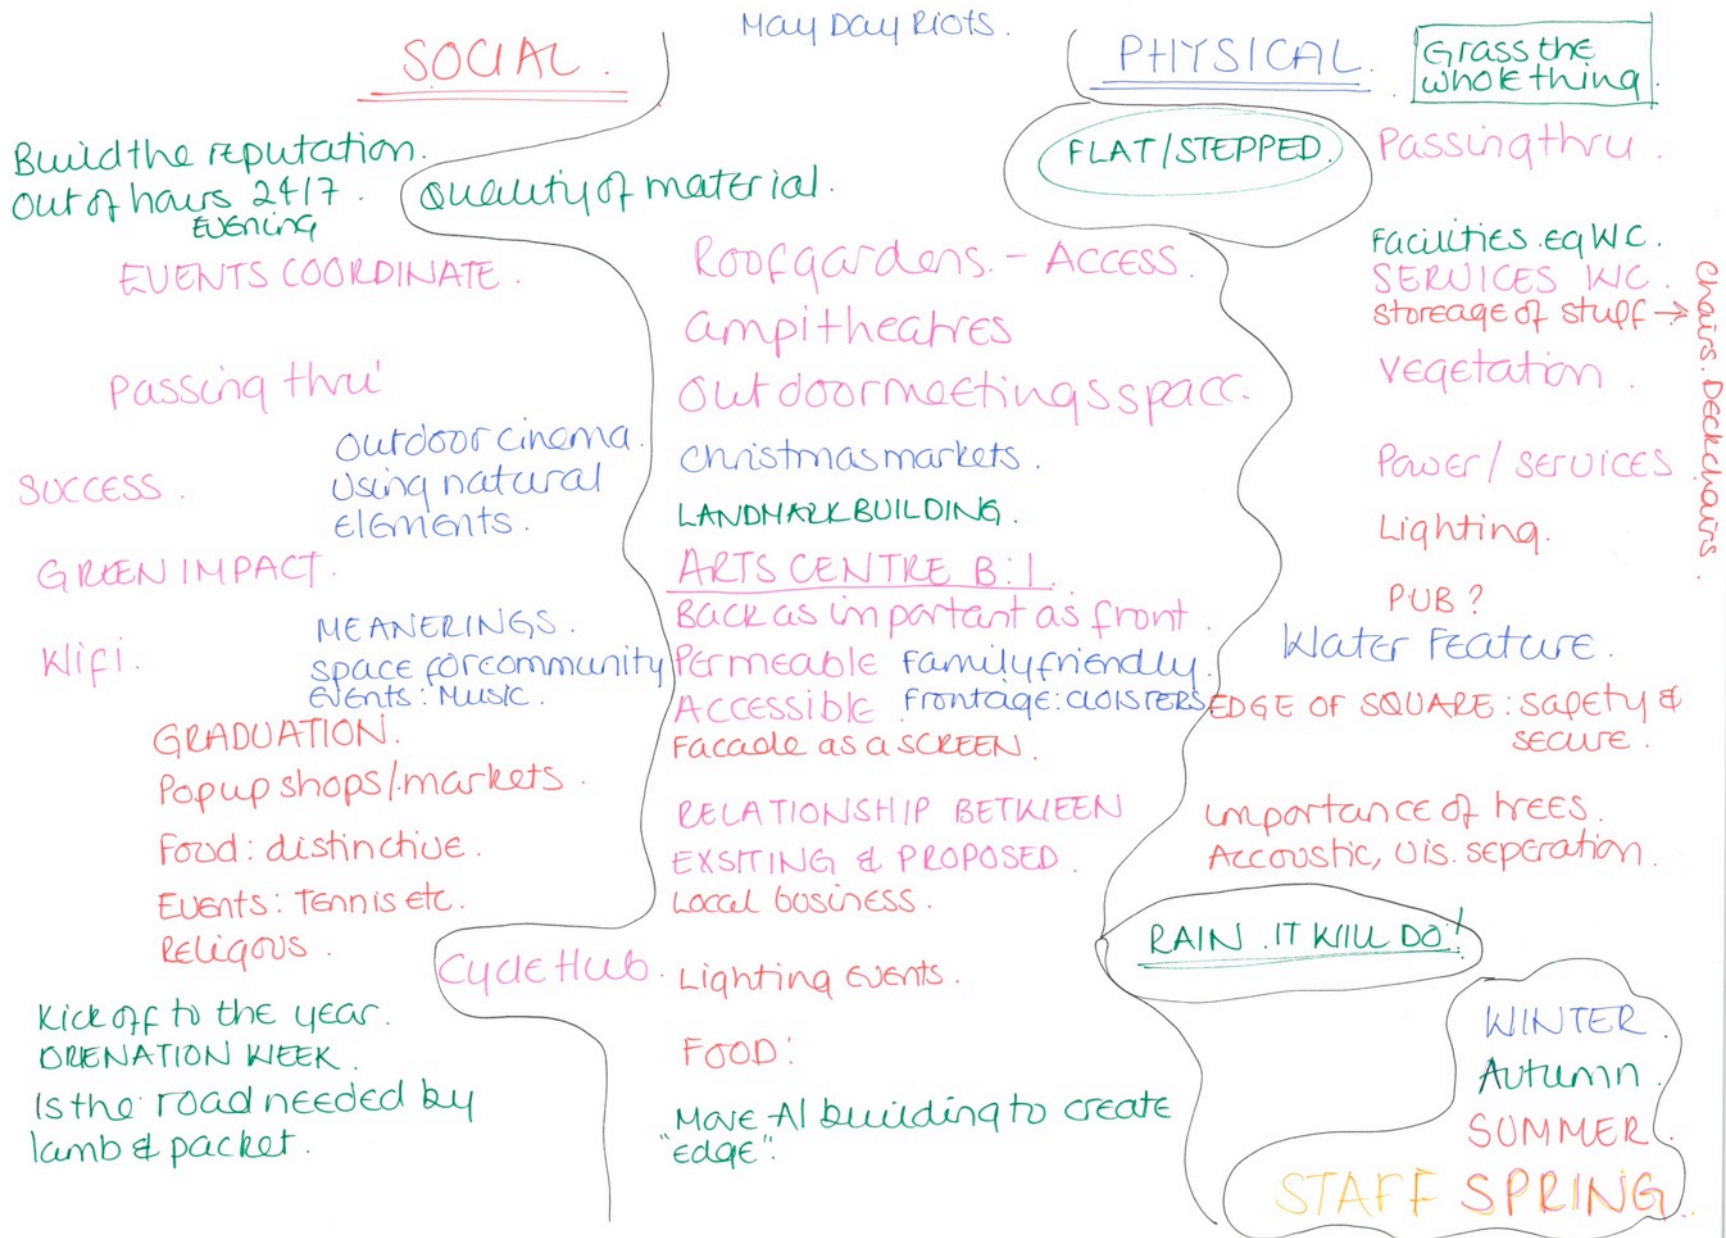 May Day Riots.
SOCIAL.
Build the reputation.
Out of hours 24/7.
Evening
EVENTS COORDINATE.
Passing thru'
Outdoor cinema.
using natural
elements.
SUCCESS.
GREEN IMPACT.
Wifi.
MEANERINGS.
space for community
events: Music.
GRADUATION.
Pop up shops/markets.
Food: distinctive.
Events: Tennis etc.
Religous.
Kick off to the year.
ORENATION WEEK.
Is the road needed by
lamb & packet.
Quality of material.
Roof gardens. - ACCESS.
ampitheatres
Outdoor meetings space.
Christmas markets.
LANDMARK BUILDING.
ARTS CENTRE B:1.
Back as important as front.
Permeable Family friendly.
Accessible. Frontage: CLOISTERS
Facade as a SCREEN.
RELATIONSHIP BETWEEN
EXSITING & PROPOSED.
Local business.
Cycle Hub.
Lighting events.
FOOD:
Move A1 building to create
"edge".
PHYSICAL.
Grass the
whole thing.
FLAT/STEPPED.
Passing thru.
Facilities. eg WC.
SERVICES WC.
Storeage of stuff →
Chairs. Deckchairs.
Vegetation.
Power/services
Lighting.
PUB?
Water Feature.
EDGE OF SQUARE: Safety &
secure.
importance of trees.
Accoustic, vis. seperation.
RAIN. IT WILL DO!
WINTER.
Autumn.
SUMMER.
STAFF SPRING.